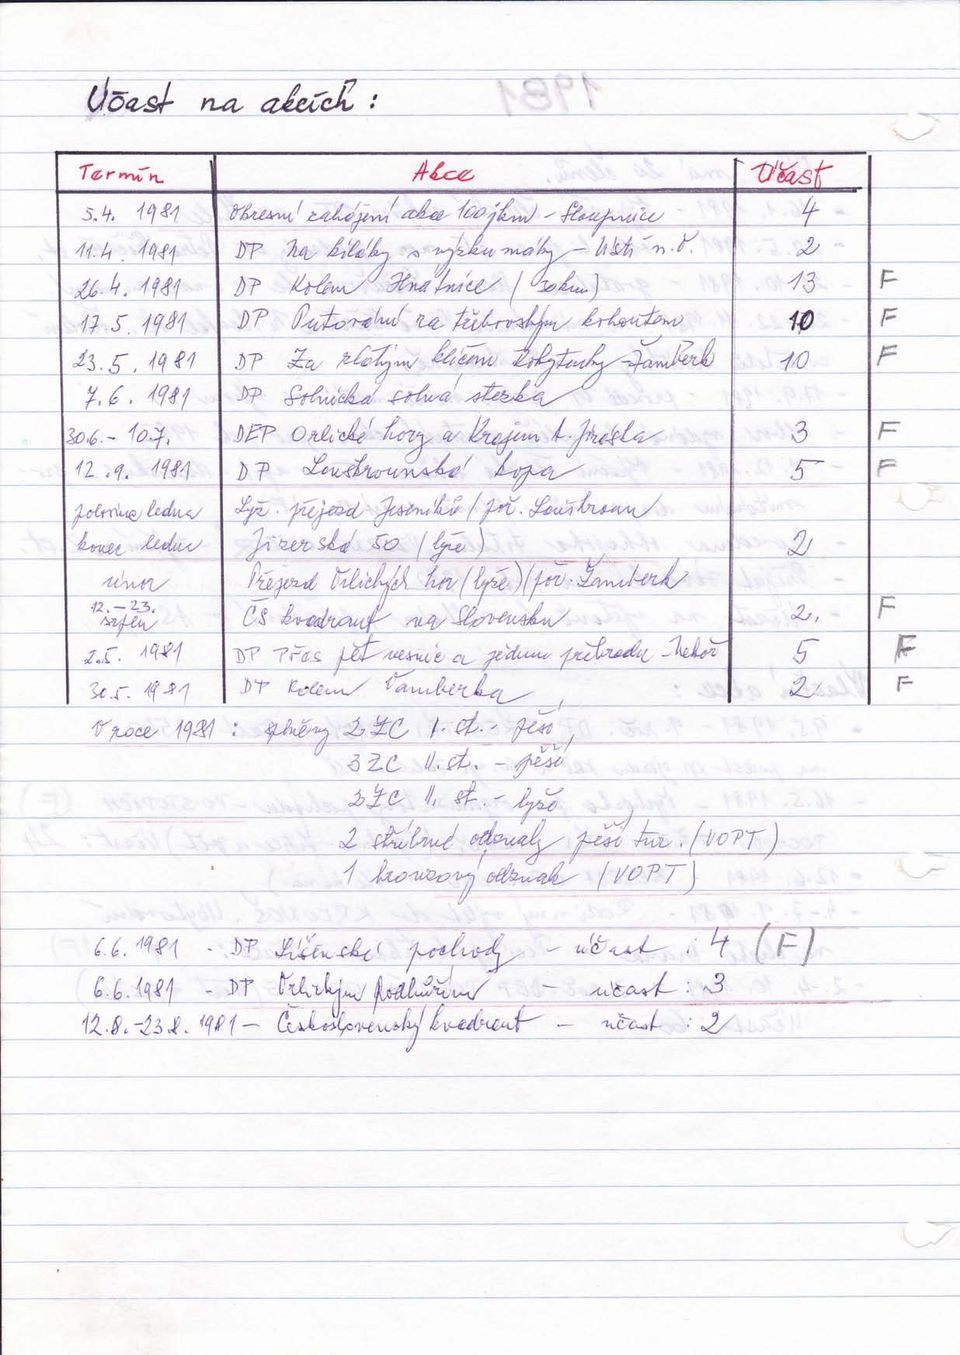 Účast na akcích :
Termín Akce Účast
5.4. 1981 Okresní zahájení akce 100 jkm - Sloupnice 4
11.4. 1981 DP Na kiláky s výzkumáky - Ústí n. O. 2
26.4. 1981 DP Kolem Hnátnice ( ) 13 F
17.5. 1981 DP Putování za třebovským kohoutem 10 F
23.5. 1981 DP Za zlatým klíčem Rokytnky - Žamberk 10 F
7.6. 1981 DP Solnická solná stezka
30.6. - 10.7. DEP Orlické hory a Krajem A. Jiráska 3 F
12.9. 1981 DP Lanškrounská kopa 5 F
polovina ledna Lyž. přejezd Jeseníků / poř. Lanškroun
konec ledna Jizerská 50 (lyže) 2
únor Přejezd Orlických hor (lyže) (poř. Žamberk
12. - 23. srpen ČS kvadrant na Slovensku 2. F
2.5. 1981 DP Přes pět vesnic a jednu přehradu - Nekoř 5 F
30.5. 1981 DP Kolem Vamberka 2 F
V roce 1981 : splněny 2 ZC I. st. - pěší
3 ZC II. st. - pěší
2 ZC II. st. - lyže
2 stříbrné odznaky pěší tur. (VOPT)
1 bronzový odznak (VOPT)
6.6. 1981 - DP Líšenské pochody - účast : 4 (F)
6.6. 1981 - DP Orlickým podhůřím - účast : 3
12.8. - 23.8. 1981 - Československý kvadrant - účast : 2